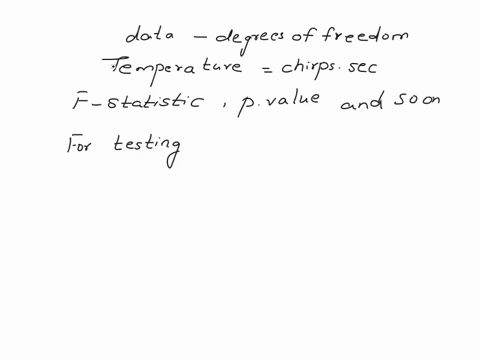 data - degrees of freedom
Temperature = chirps.sec
F-statistic, p.value and soon
For testing